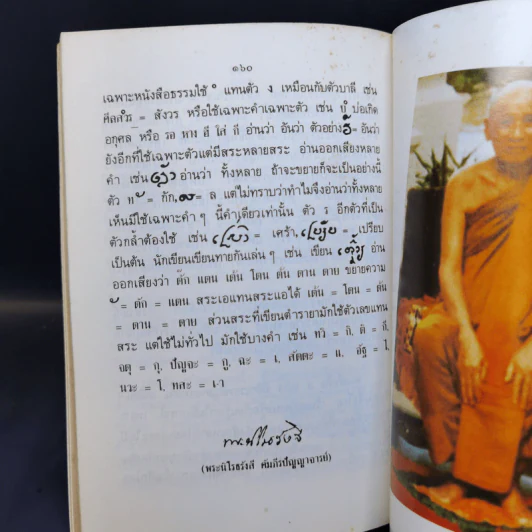 ๑๖๐
เฉพาะหนังสือธรรมใช้ ํ แทนตัว ง เหมือนกับตัวบาลี เช่น
= สังวร หรือใช้เฉพาะคำเฉพาะตัว เช่น บํ บ่อเกิด
อกุศล หรือ รอ หาง อี ใส่ กี อ่านว่า อันว่า ตัวอย่าง = อันว่า
ยังอีกที่ใช้เฉพาะตัวแต่มีสระหลายสระ อ่านออกเสียงหลาย
คำ เช่น อ่านว่า ทั้งหลาย ถ้าจะขยายก็จะเป็นอย่างนี้
ตัว ท = กัก, = ล แต่ไม่ทราบว่าทำไมจึงอ่านว่าทั้งหลาย
เห็นมีใช้เฉพาะคำ ๆ นี้คำเดียวเท่านั้น ตัว ร อีกตัวที่เป็น
ตัวกล้ำต้องใช้ เช่น = เคร้า, = เปรียบ
เป็นต้น นักเขียนเขียนทายกันเล่น ๆ เช่น เขียน อ่าน
ออกเสียงว่า ตัก แดน เด้น โดน ตัน ตาน ตาย ขยายความ
= ตัก = แดน สระเอแทนสระแอได้ เด้น = โดน = ตัน
= ตาน = ตาย ส่วนสระที่เขียนตำรายามักใช้ตัวเลขแทน
สระ แต่ใช้ไม่ทั่วไป มักใช้บางคำ เช่น ทวิ = กิ, ติ = กี,
จตุ = กุ, ปัญจะ = กู, ฉะ = เ, สัตตะ = แ, อัฐ = ไ,
นวะ = ใ, ทสะ = เ-า
(พระนิโรธรังสี คัมภีรปัญญาจารย์)